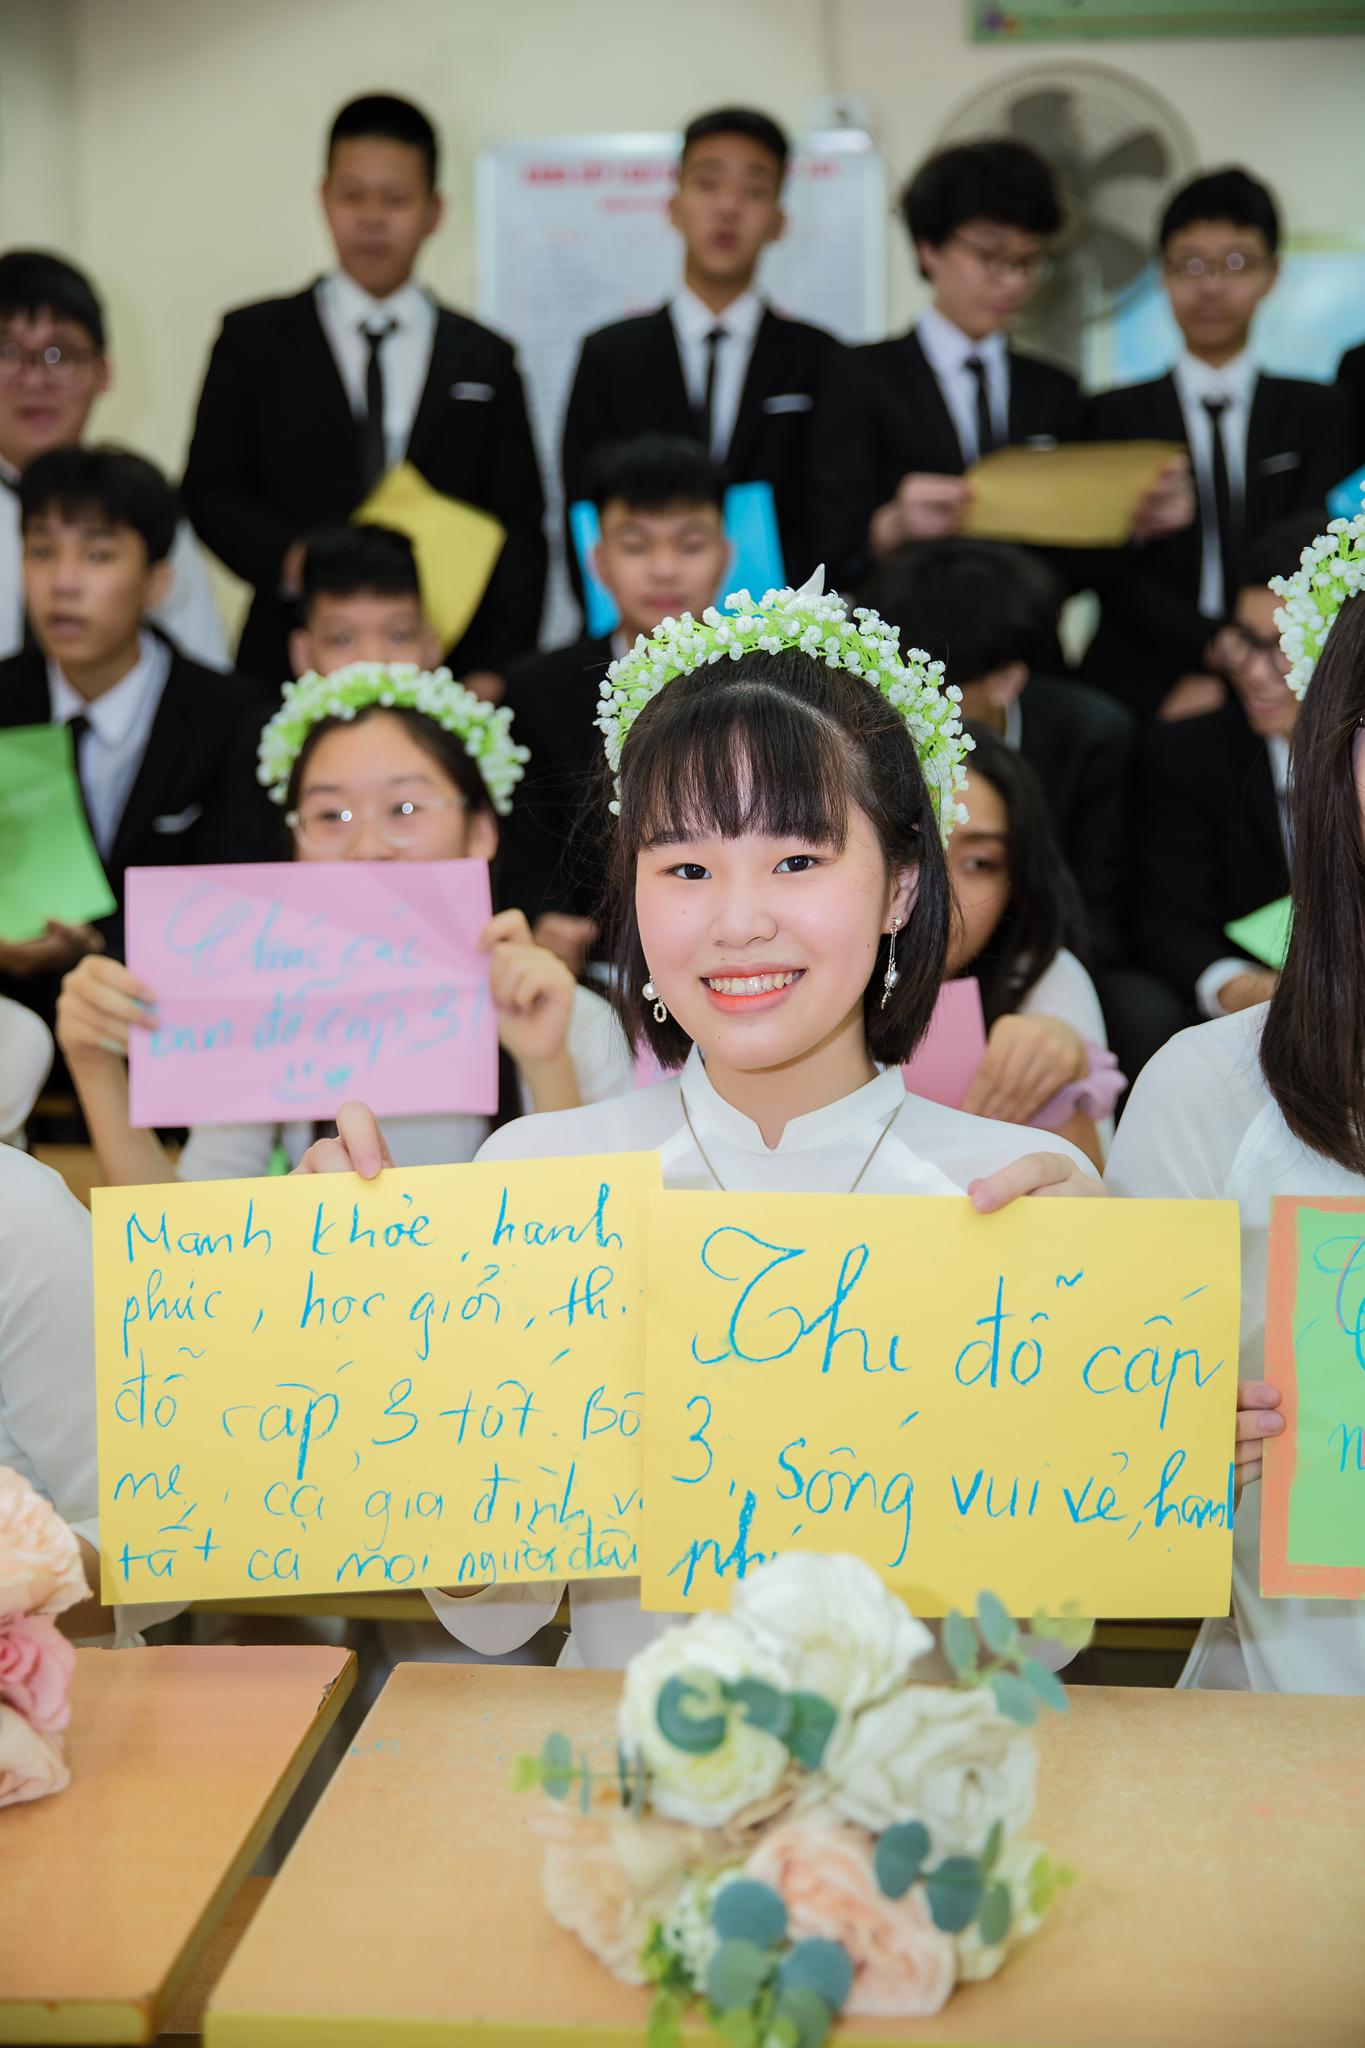 Chúc các
bạn đỗ cấp 3!
Manh khỏe, hanh
phúc, học giỏi, th.
đỗ cấp 3 tốt. Bố
mẹ, cả gia đình v
tất cả mọi người đều
Thi đỗ cấp
3, Sống vui vẻ, hanh
phú